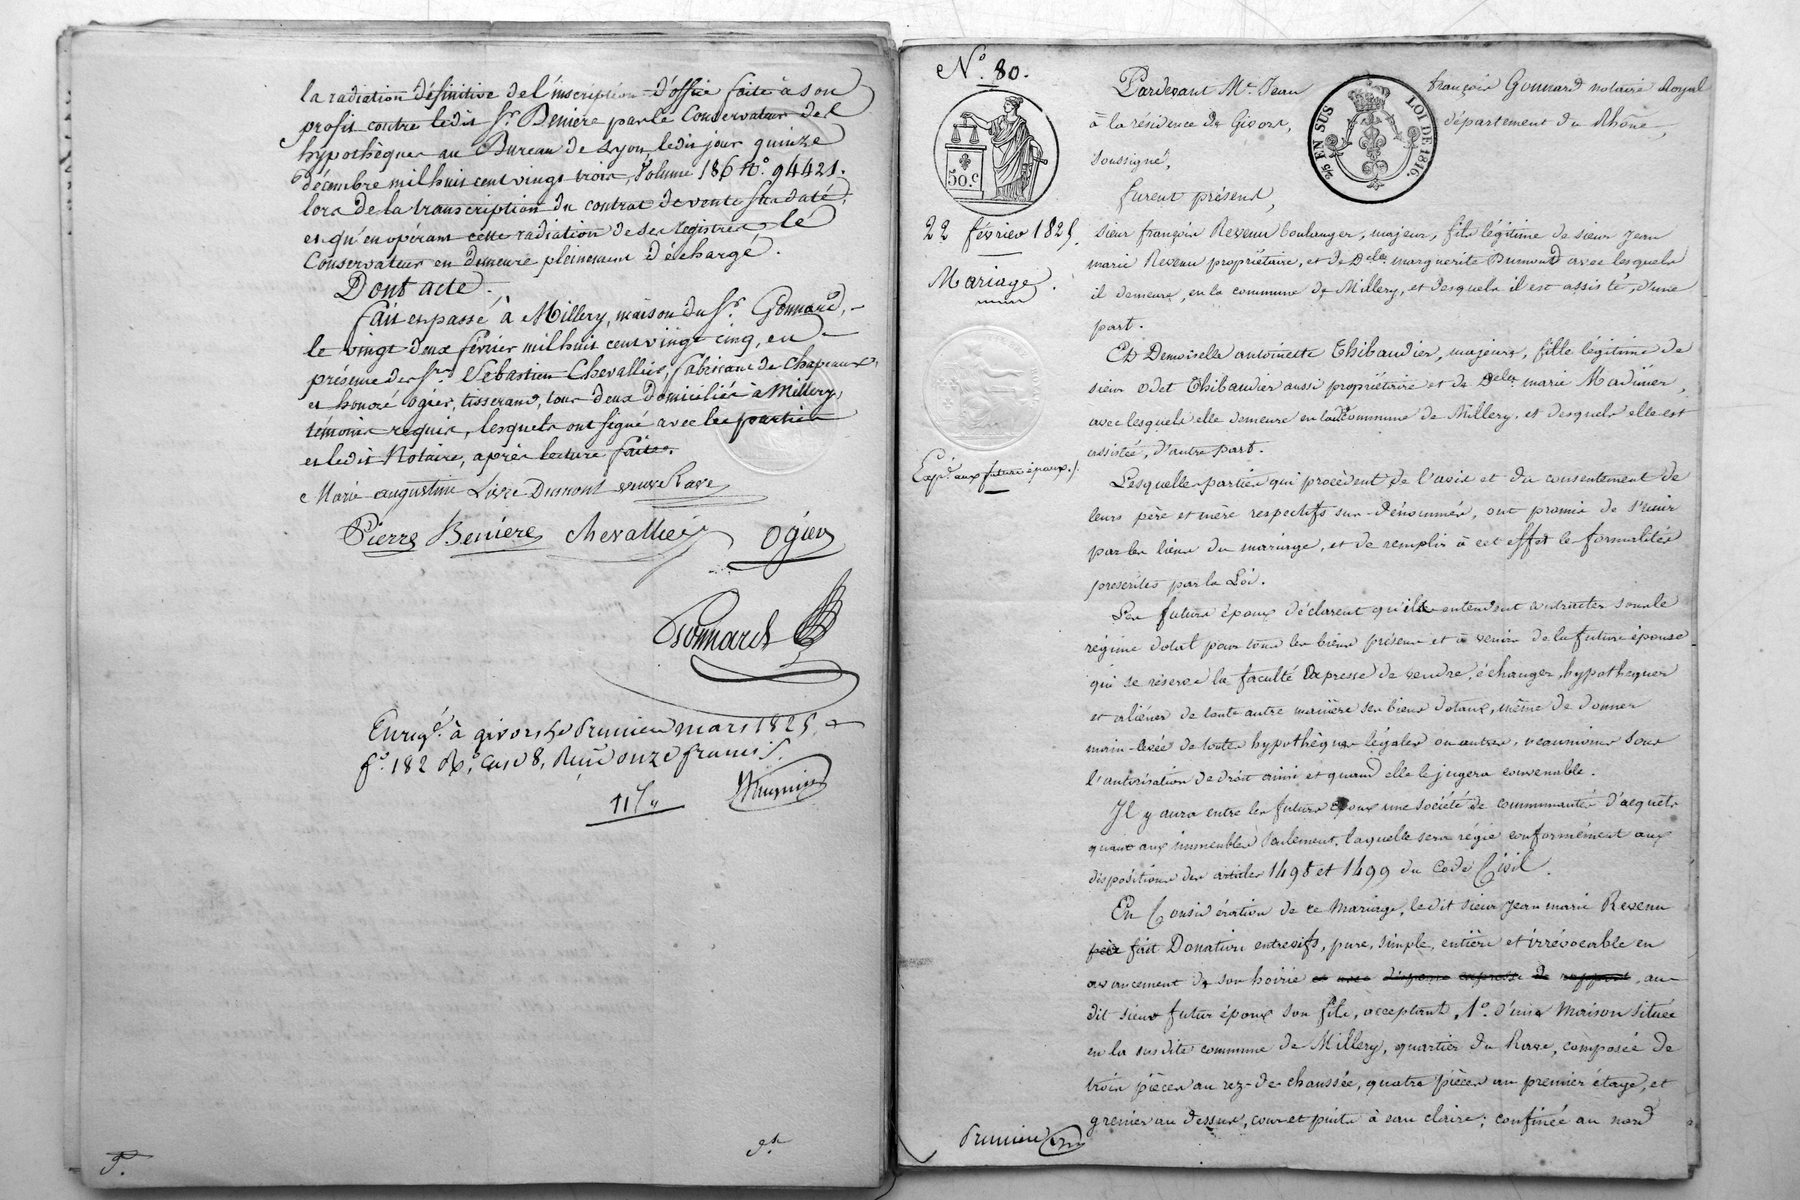 la radiation définitive de l'inscription d'office faite à son
profit contre ledit Sr. Benière par le Conservateur des
hypothèques au Bureau de Lyon ledit jour quinze
décembre mil huit cent vingt trois, Volume 186 No. 94421.
lors de la transcription du contrat de vente susdaté,
et qu'en opérant cette radiation de ses registres, le
Conservateur en demeure pleinement déchargé.
Dont acte.
fait et passé à Millery, maison du Sr. Gonnard,
le vingt deux février mil huit cent vingt cinq, en
présence des Srs. Sébastien Chevallier, fabricant de chapeaux,
et honoré Ogier, tisserand, tous deux domiciliés à Millery,
témoins requis, lesquels ont signé avec les parties
et ledit Notaire, après lecture faite.
Marie augustine Dumont veuve
Pierre Benière Chevallier Ogier
Gonnard
Enregé. à givors le premier mars 1825,
fo. 182 Ro. case 8, Reçu onze francs
11f
No. 80.
50.c
22 février 1825.
Mariage.
Expé. aux futurs époux.
25 EN SUS
LOI DE 1816.
Pardevant Me. Jean françois Gonnard notaire Royal
à la résidence de Givors, département du Rhône,
soussigné,
furent présens,
sieur françois Revenu boulanger, majeur, fils légitime de sieur Jean
marie Revenu propriétaire, et de Delle marguerite Dumond avec lesquels
il demeure, en la commune de Millery, et desquels il est assisté, d'une
part.
Et Demoiselle antoinette Thibaudier, majeure, fille légitime de
sieur odet Thibaudier aussi propriétaire et de Delle marie
avec lesquels elle demeure en ladte commune de Millery, et desquels elle est
assistée, d'autre part.
Lesquelles parties qui procèdent de l'avis et du consentement de
leurs père et mère respectifs sus-dénommés, ont promis de s'unir
par les liens du mariage, et de remplir à cet effet les formalités
prescrites par la Loi.
Les futurs époux déclarent qu'ils entendent contracter sous le
régime dotal pour tous les biens présens et à venir de la future épouse
qui se réserve la faculté expresse de vendre, échanger, hypothequer
et aliéner de toute autre manière ses biens dotaux, même de donner
main-levée de toutes hypothèques légales ou autres, néanmoins sous
l'autorisation de droit ainsi et quand elle le jugera convenable.
Il y aura entre les futurs époux une société de communauté d'acquêts
quant aux immeubles seulement, laquelle sera régie conformément aux
dispositions des articles 1498 et 1499 du Code Civil.
En Considération de ce Mariage, ledit sieur Jean marie Revenu
père fait Donation entrevifs, pure, simple, entière et irrévocable en
avancement de son hoirie et avec dispense expresse de rapport, au-
dit sieur futur époux son fils, acceptant, 1o. d'une Maison située
en la susdite commune de Millery, quartier du Rave, composée de
trois pièces au rez-de-chaussée, quatre pièces au premier étage, et
grenier au dessus, cour et puits à eau claire; confinée au nord
première